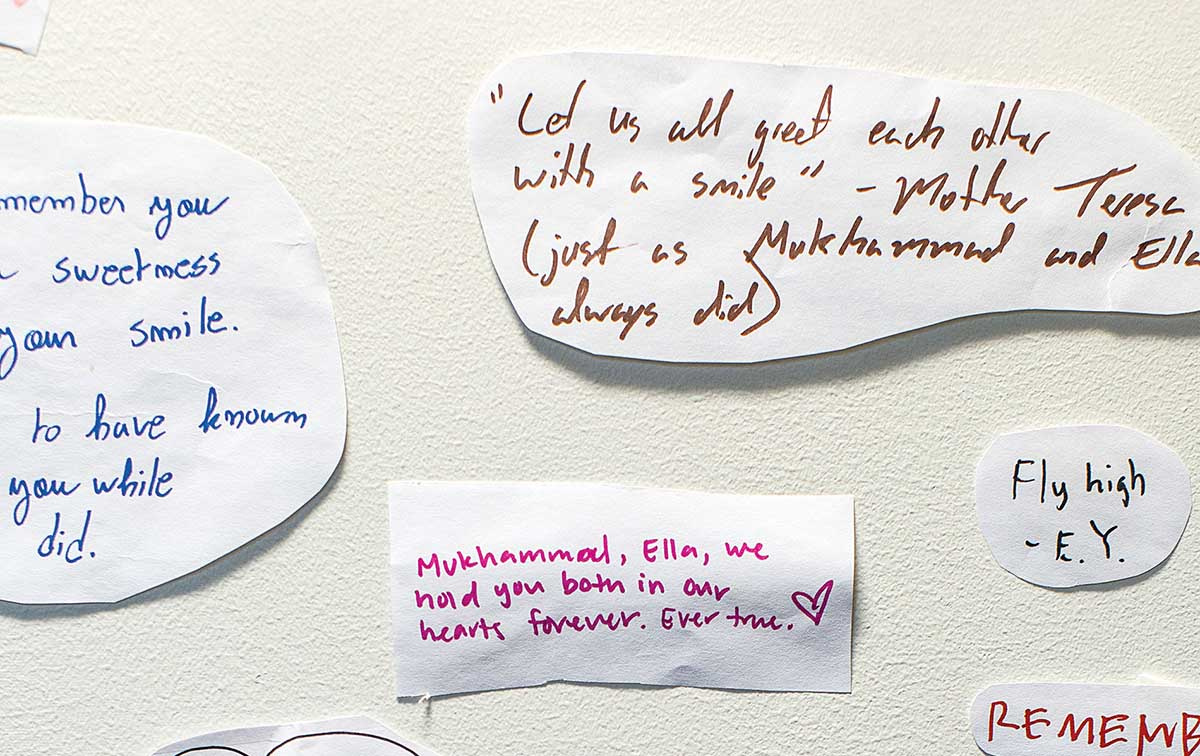 member you
sweetness
your smile.
to have known
you while
did.
"Let us all greet each other
with a smile" - Mother Teresa
(just as Mukhammad and Ella
always did)
Mukhammad, Ella, we
hold you both in our
hearts forever. Ever true.
Fly high
- E.Y.
REMEMB